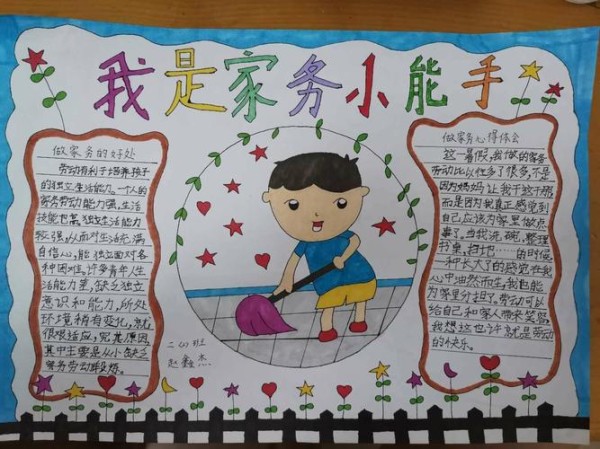 我是家务小能手
做家务的好处
劳动有利于培养孩子
的独立生活能力。一个人的
家务劳动能力强,生活
技能也高,独立生活能力
较强,从而对生活充满
自信心,能独立面对各
种困难,许多青年人生
活能力差,缺乏独立
意识和能力,所处
环境稍有变化,就
很难适应,究其原因,
其中主要是从小缺乏
家务劳动锻炼。
做家务心得体会
这一暑假,我做的家务
劳动比以往多了很多,不是
因为妈妈让我干这干那,
而是因为我真正感觉到
自己应该为家里做点
事了。当我洗碗,整理
书桌,扫地……的时候,
一种长大了的感觉在我
心中油然而生,我也能
为家里分担了,劳动可以
给自己和家人带来笑容,
我想这也许就是劳动
的快乐。
二(4)班
赵鑫杰